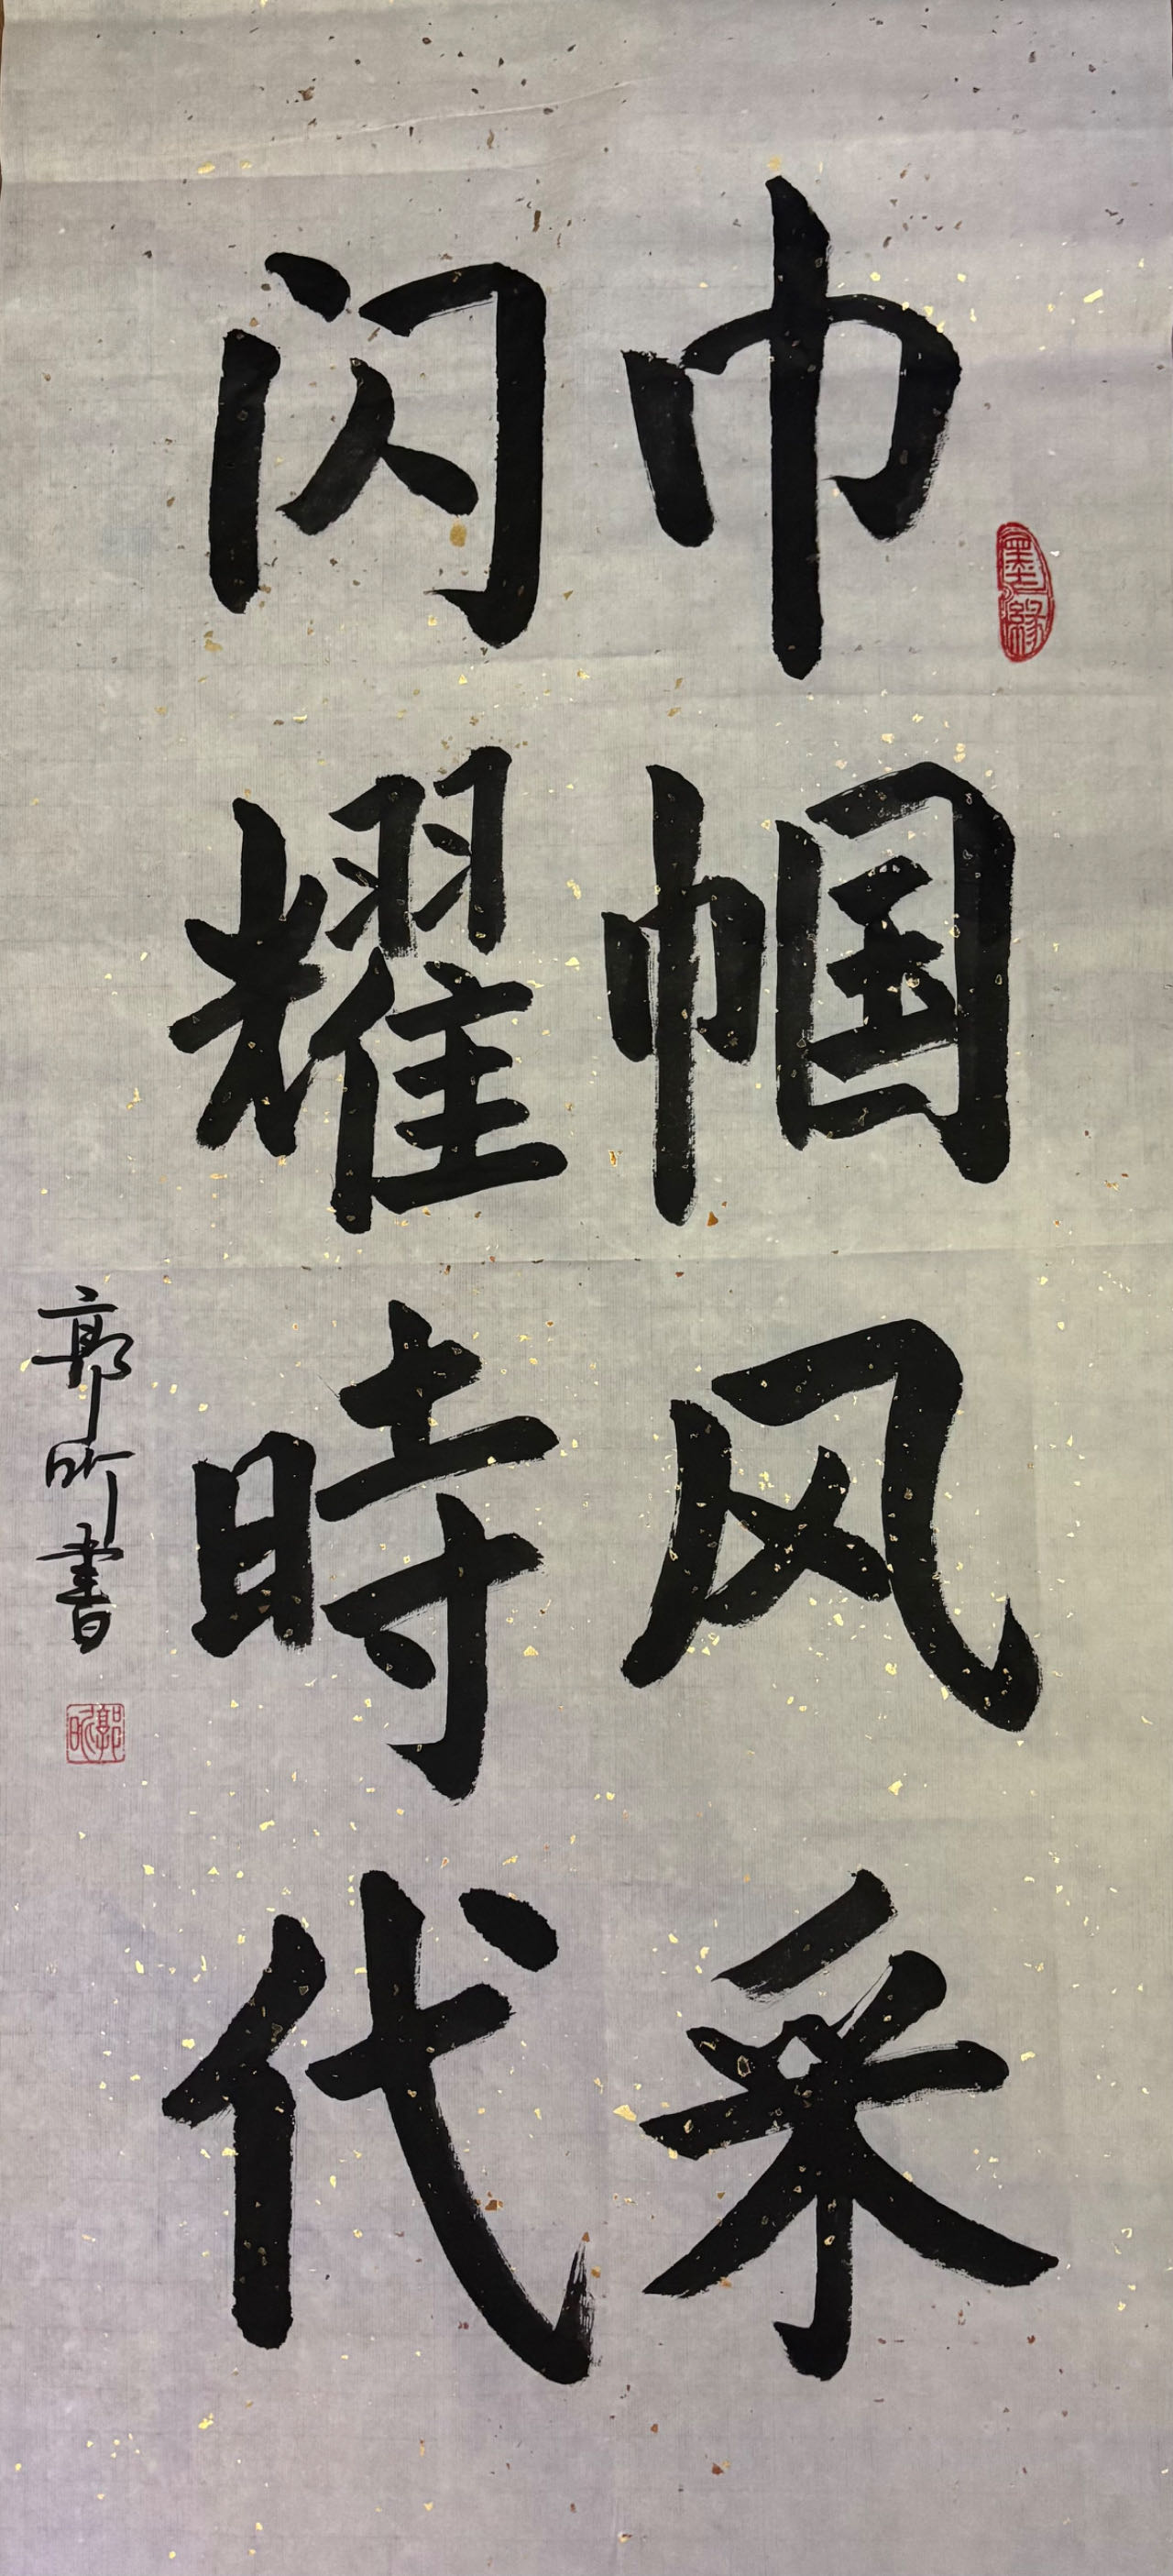 巾帼风采
闪耀時代
郭昕書
墨缘
郭昕